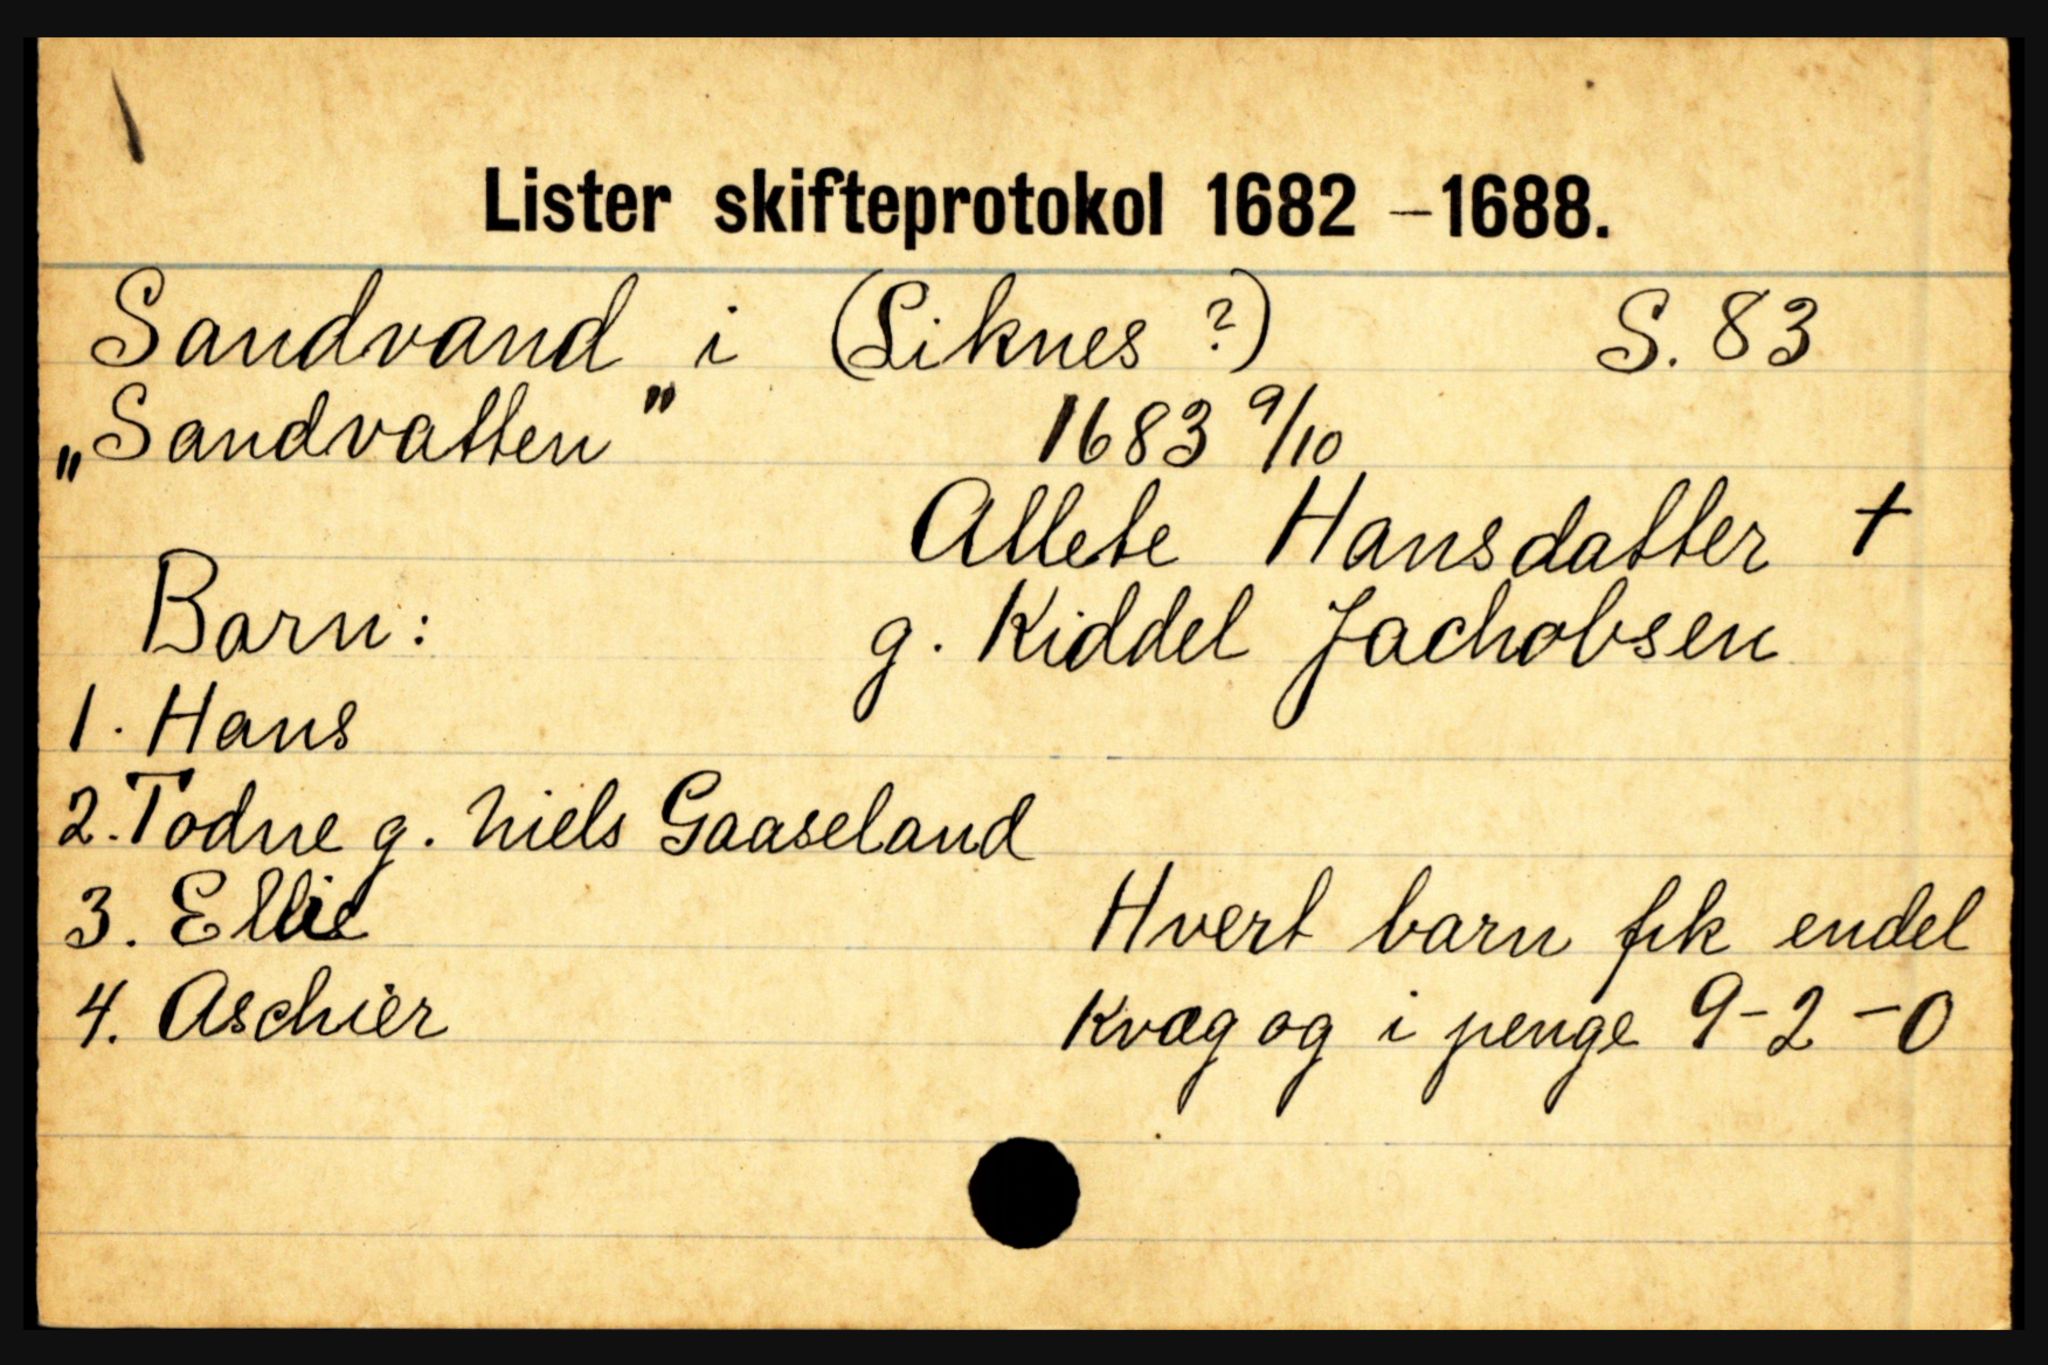 Lister skifteprotokol 1682 – 1688.
Sandvand i (Liknes ?) S. 83
„Sandvatten” 1683 9/10
Allete Hansdatter +
Barn: g. Kiddel Jachobsen
1. Hans
2. Todne g. Niels Gaaseland
3. Ellie Hvert barn fik endel
4. Aschier kvæg og i penge 9-2-0